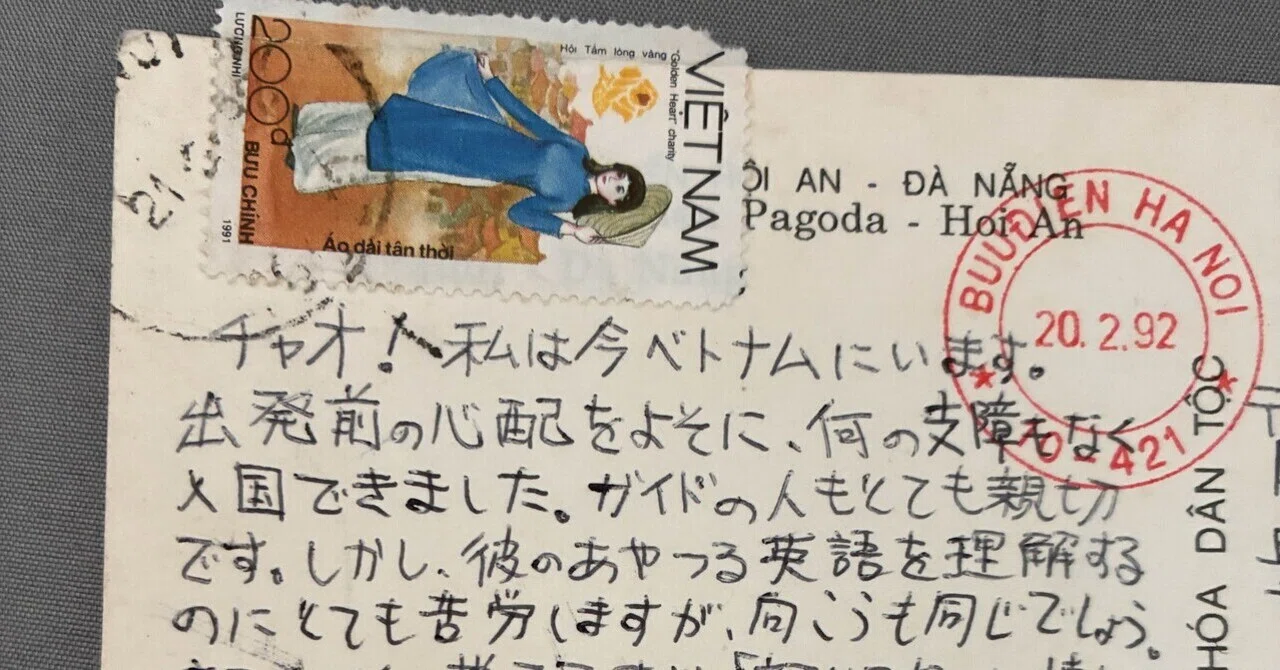 VIỆT NAM
"Golden Heart" charity
Hội Tấm lòng vàng
200đ
BƯU CHÍNH
1991
Áo dài tân thời
ỘI AN - ĐÀ NẴNG
Pagoda - Hoi An
BUUDIEN HA NOI
20.2.92
421
21
HÓA DÂN TỘC
チャオ! 私は今ベトナムにいます。
出発前の心配をよそに、何の支障もなく
入国できました。ガイドの人もとても親切
です。しかし、彼のあやつる英語を理解する
のにとても苦労しますが、向こうも同じでしょう。